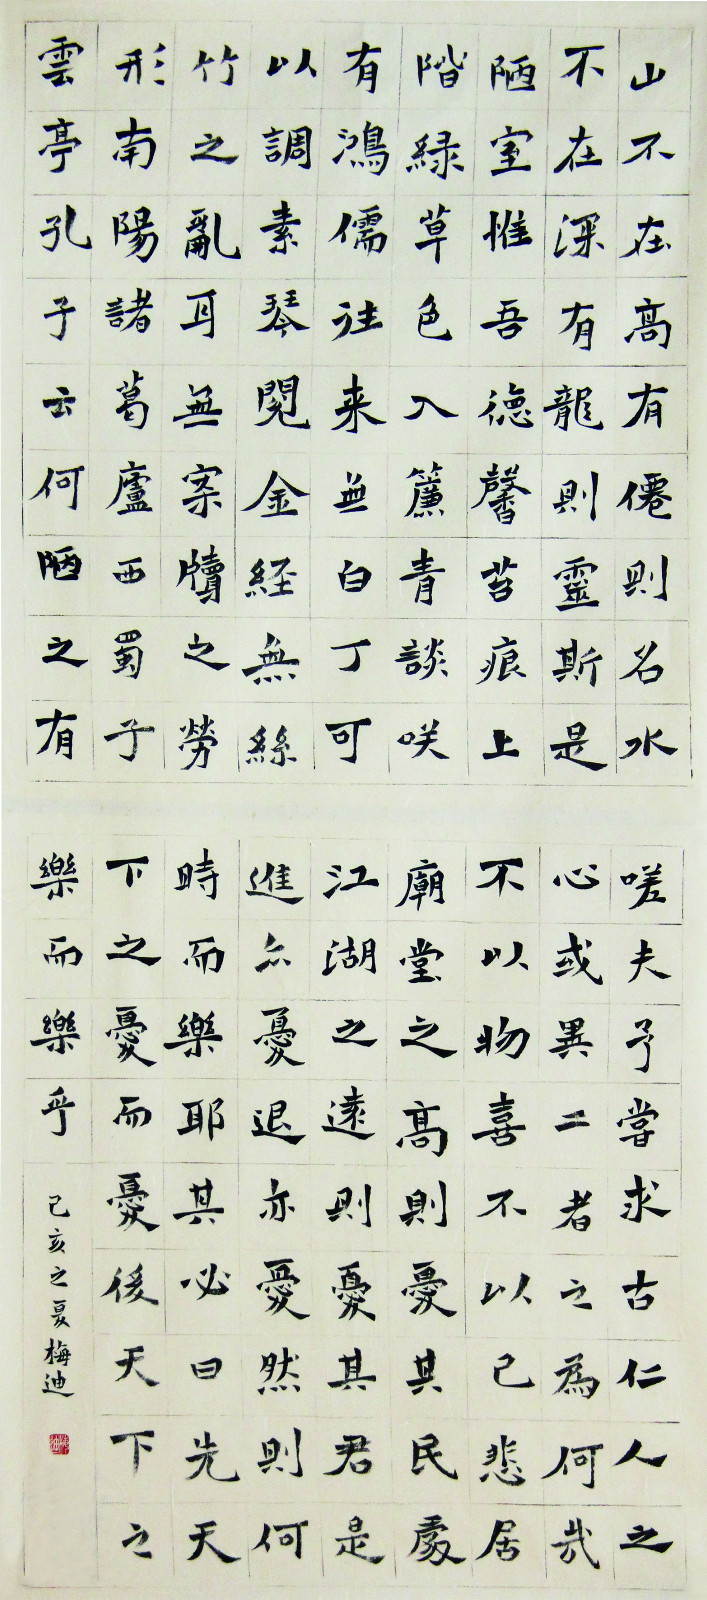 山不在高有僊則名水
不在深有龍則靈斯是
陋室惟吾德馨苔痕上
階緑草色入簾青談咲
有鴻儒往来無白丁可
以調素琴閱金経無絲
竹之亂耳無案牘之勞
形南陽諸葛廬西蜀子
雲亭孔子云何陋之有
嗟夫予嘗求古仁人之
心或異二者之為何哉
不以物喜不以己悲居
廟堂之高則憂其民處
江湖之遠則憂其君是
進亦憂退亦憂然則何
時而樂耶其必曰先天
下之憂而憂後天下之
樂而樂乎
己亥之夏梅迪